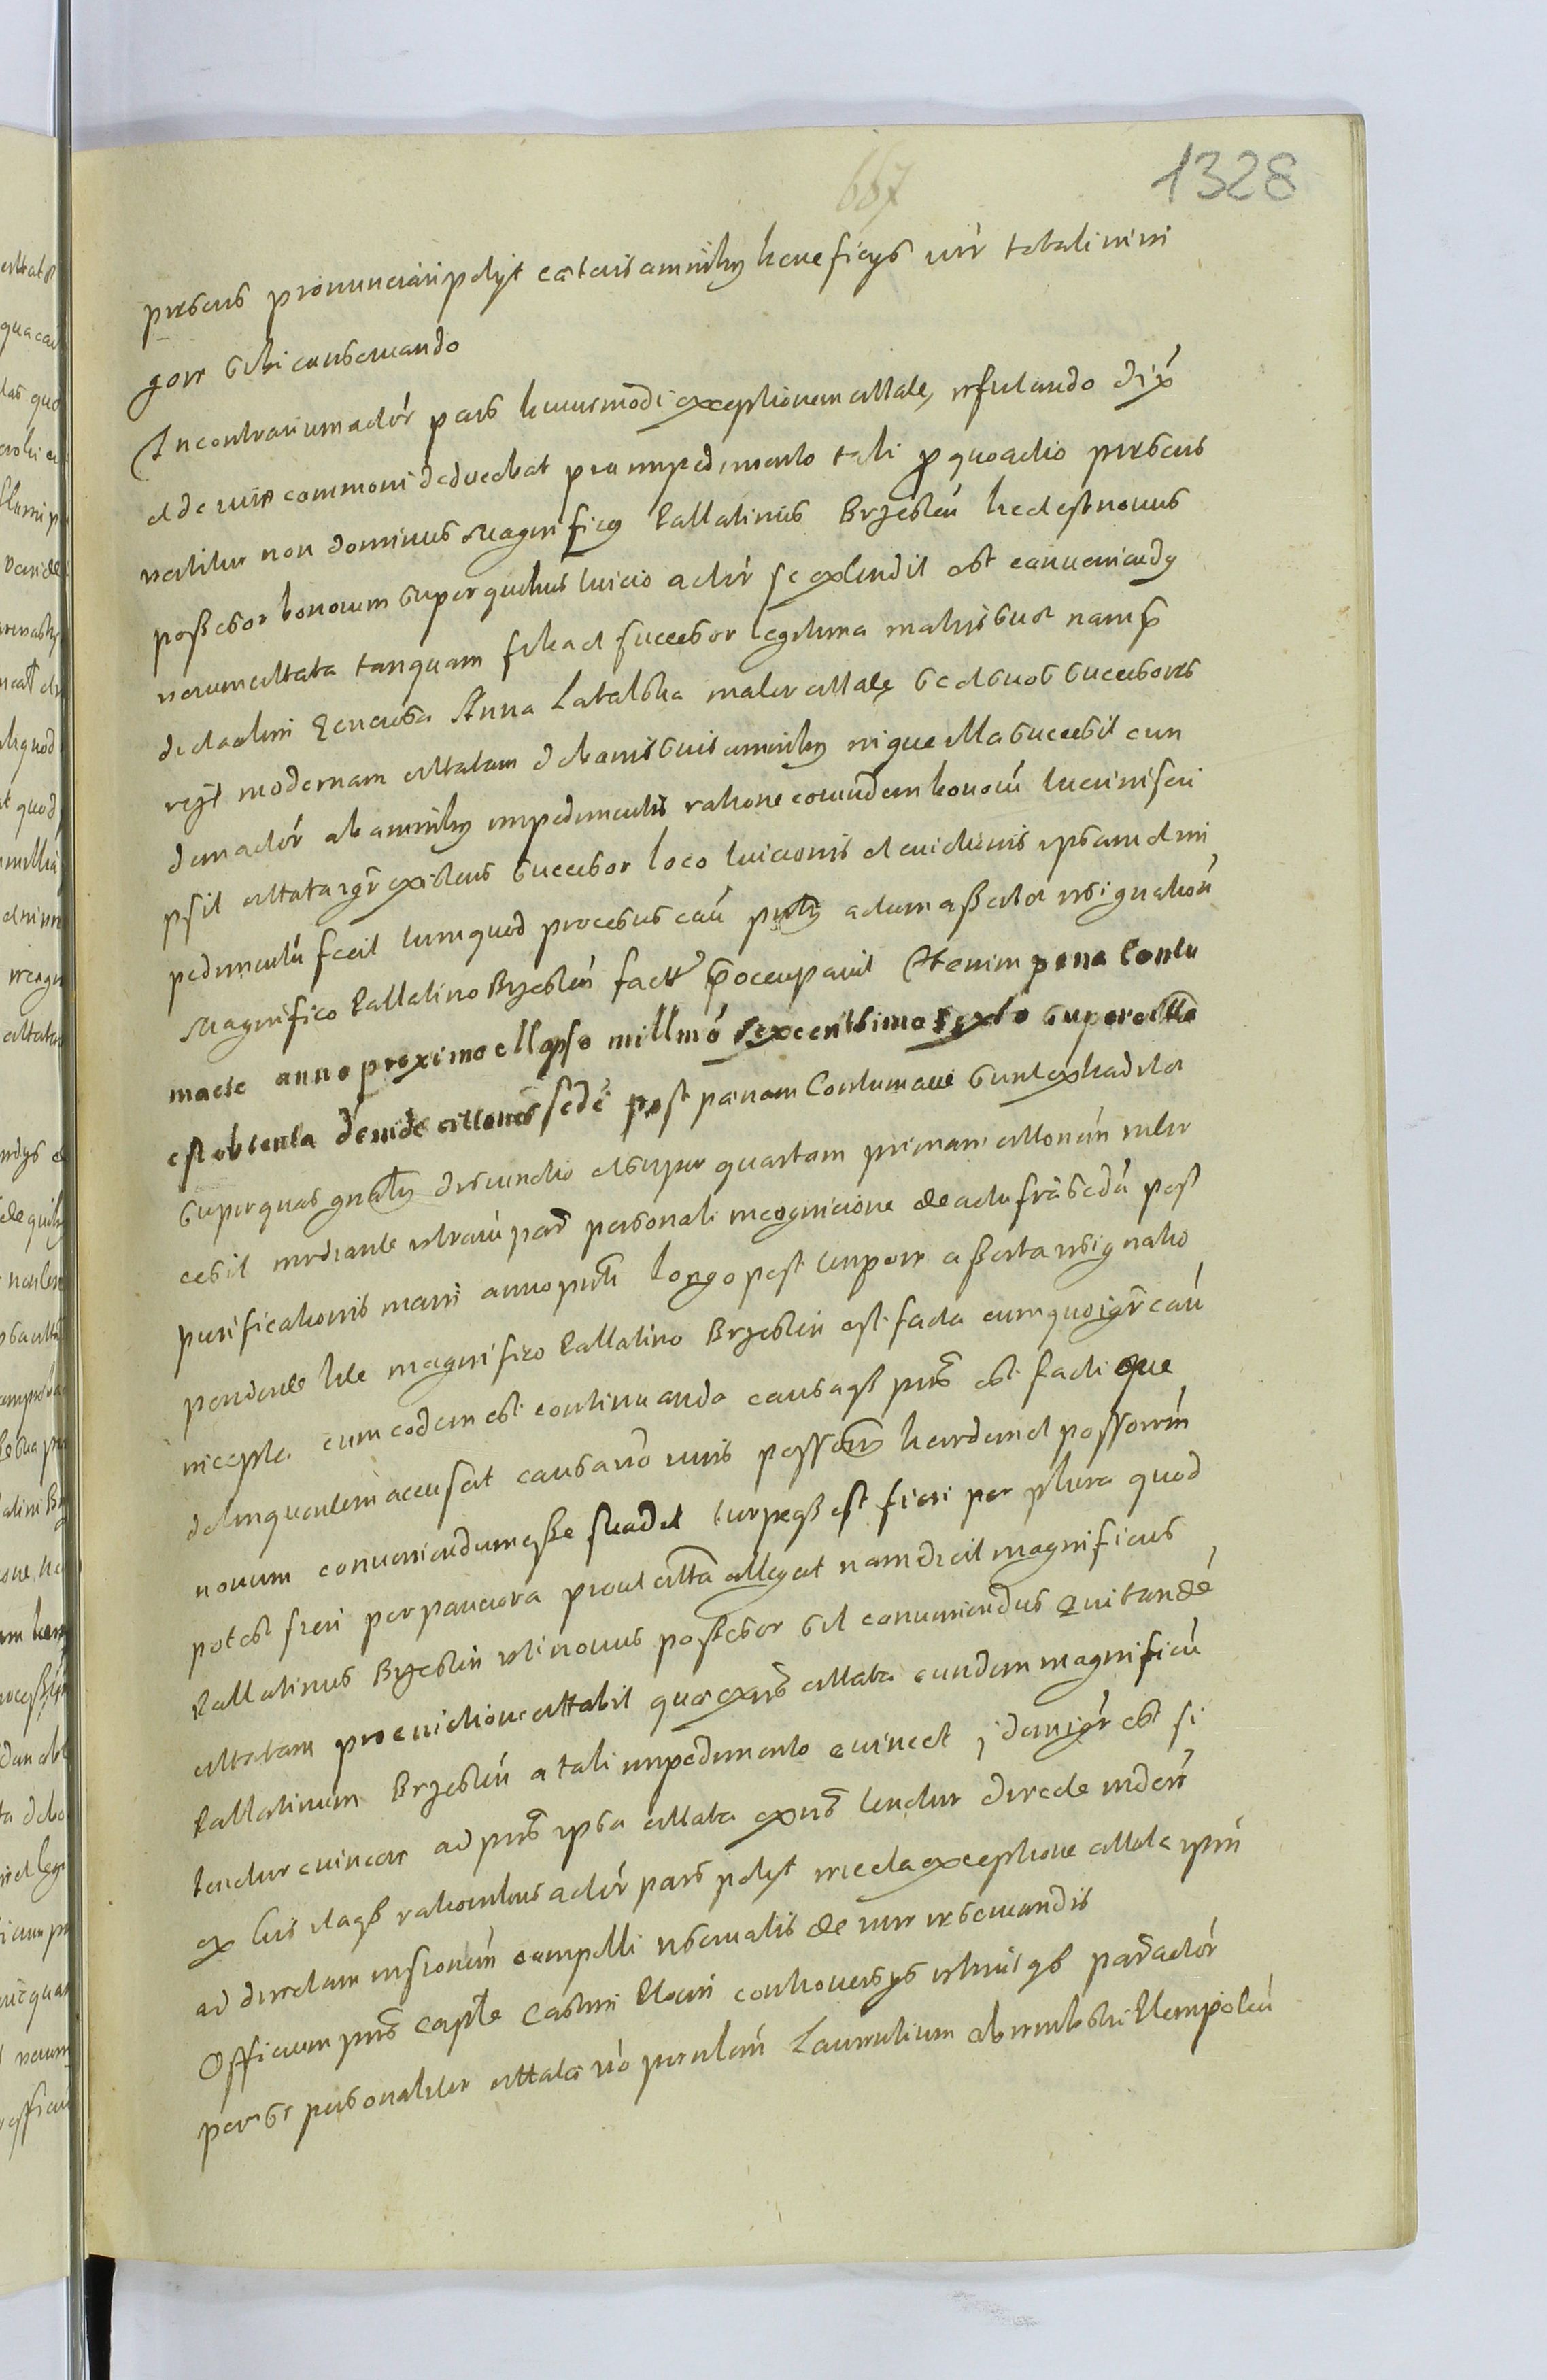 667
1328
presens pronunciari petyt caeteris omnibus beneficys iuris totali iuris ri
gore sibi conservando
In contrarium actor pars huiusmodi exceptionem cittatae, refutando dixit
et de iure communi deducebat pro impedimento tali pro quo actio presens
vertitur non dominus Magnificus Pallatinus Brzesten licet est novus
possessor bonorum super quibus luicio actor se extendit est conveniendus
verum cittata tanquam filia et successor legitima matris suae namque
dicta olim Generosa Anna Latalska mater cittatae se et suos successores
modernam cittatam de bonis suis omnibus in quae illa successit eun
dem actorem ab omnibus impedimentis ratione eorundem bonorum tueri inscri
psit cittata igitur existens successor loco luicionis et evictionis ipsamet im
pedimentum fecit tum quod processus causae praesentis actum assertae resignationis
Magnifico Pallatino Brzesten factae praeoccupavit Etenim pena Contu
maciae anno proximo ellapso millmo sexcentesimo sexto super cittata
est obtenta deinde cittones sedem post paenam Contumaciae sunt extraditae
super quas generalibus discunctio et super quartam primam cittonem inter
cessit mediante utrarumque partium personali incognicione de actu feria secunda post
purificationis mari anno praesenti longo post tempore asserta resignatio
pendente lite magnifico Pallatino Brzesten est facta cum quo igitur causa
incepta cum eodem est continuanda causaque praesens est facti quae
delinquentem accusat causa vero iuris possessorem haeredem et possessorem
novum conveniendum esse suadet turpeque est fieri per plura quod
potest fieri per pauciora prout cittata allegat nam dicit magnificus
Pallatinus Brzesten uti novus possessor sit conveniendus qui tandem
cittatam pro evictione cittabit quae existens cittata eundem magnificum
Pallatinum Brzesten a tali impedimento evincet, idem igitur est si
tenetur evincere ad praesens ipsa cittata existens tenetur directe inderi
ex his itaque rationibus actor pars petyt reiecta exceptione cittatae ipsam
ad directam responsionem compelli reservatis de iure reservandis
Officium praesens Capitle Castren Kloeni controversys utriusque partis actor
per se personaliter cittatae vero per nobilem Laurentium